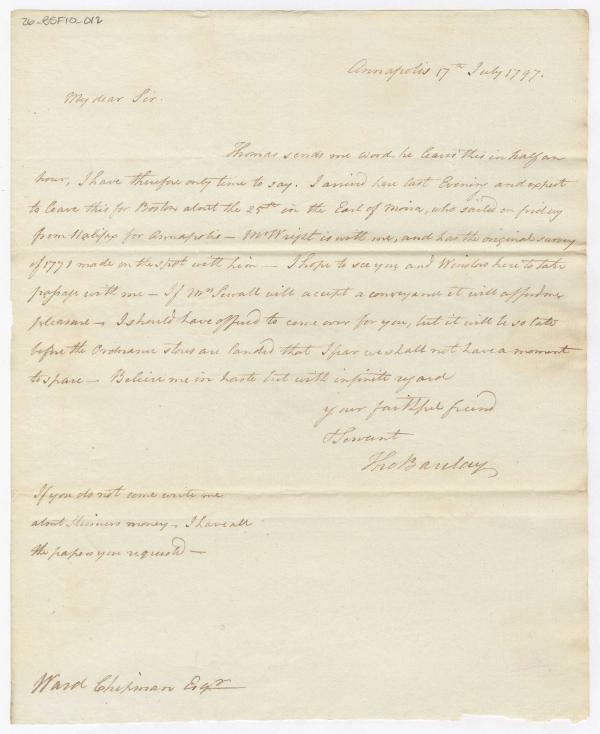 26-RSF10-012
Annapolis 17th July 1797.
My dear Sir.
Thomas sends me word he leaves this in half an
hour, I have therefore only time to say. I arrived here last Evening and expect
to leave this for Boston about the 25th in the Earl of Moira, who sailed on friday
from Halifax for Annapolis — Mr Wright is with me, and has the original survey
of 1771 made on the spot with him — I hope to see you, and Winslow here to take
passage with me — If Mrs Sewall will accept a conveyance it will afford me
pleasure — I should have offered to come over for you, but it will be so late
before the Ordnance stores are landed that I fear we shall not have a moment
to spare — Believe me in haste but with infinite regard
your faithful friend
& Servant
Tho Barclay
If you do not come write me
about money — I have all
the papers you requested —
Ward Chipman Esqr